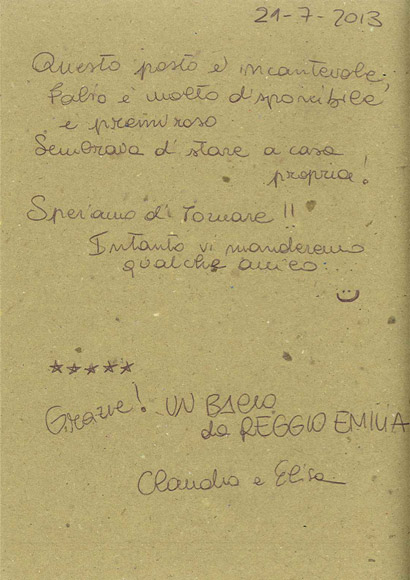 21-7-2013
Questo posto è incantevole,
Fabio è molto disponibile
e premuroso.
Sembrava di stare a casa
propria!
Speriamo di tornare!!
Intanto vi manderemo
qualche amico...
Grazie! UN BACIO
da REGGIO EMILIA
Claudia e Elisa